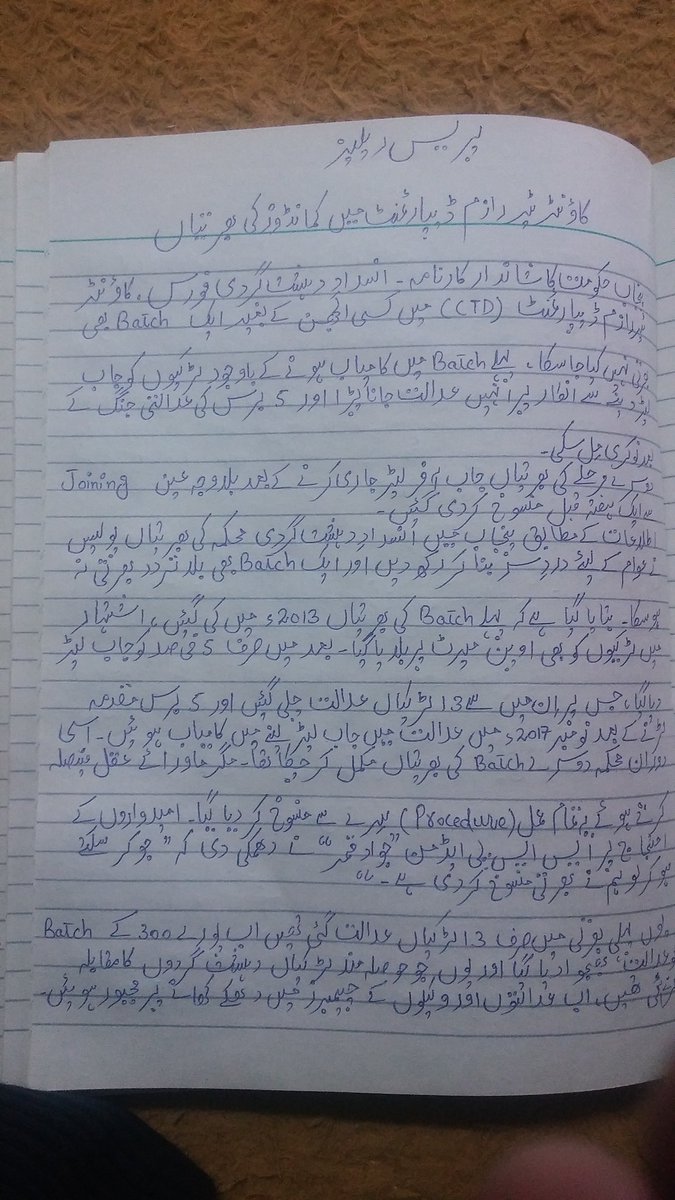 پریس ریلیز
کاؤنٹر ٹیررازم ڈیپارٹمنٹ میں کمانڈوز کی بھرتیاں
پنجاب حکومت کا شاندار کارنامہ۔ انسداد دہشت گردی فورس، کاؤنٹر
ٹیررازم ڈیپارٹمنٹ (CTD) میں کسی الجھن کے بغیر ایک Batch بھی
بھرتی نہیں کیا جا سکا، پہلے Batch میں کامیاب ہونے کے باوجود لڑکیوں کو جاب
لیٹر دینے سے انکار پر انہیں عدالت جانا پڑا اور 5 برس کی عدالتی جنگ کے
بعد نوکری مل سکی۔
دوسرے مرحلے کی بھرتیاں جاب آفر لیٹر جاری کرنے کے بعد بلاوجہ عین Joining
سے ایک ہفتہ قبل منسوخ کر دی گئیں۔
اطلاعات کے مطابق پنجاب میں انسداد دہشت گردی محکمہ کی بھرتیاں پولیس
نے عوام کے لیئے درد سر بنا کر رکھ دیں اور ایک Batch بھی بلا تردد بھرتی نہ
ہو سکا۔ بتایا گیا ہے کہ پہلے Batch کی بھرتیاں 2013ء میں کی گئیں، اشتہار
میں لڑکیوں کو بھی اوپن میرٹ پر بلایا گیا۔ بعد میں صرف 5 فی صد کو جاب لیٹر
دیا گیا، جس پر ان میں سے 13 لڑکیاں عدالت چلی گئیں اور 5 برس مقدمہ
لڑنے کے بعد نومبر 2017ء میں عدالت میں جاب لیٹر لینے میں کامیاب ہوئیں۔ اسی
دوران محکمہ دوسرے Batch کی بھرتیاں مکمل کر چکا تھا۔ مگر ماورائے عقل فیصلہ
کرتے ہوئے تمام عمل (Procedure) سرے سے منسوخ کر دیا گیا۔ امیدواروں کے
احتجاج پر ایس ایس پی ایڈمن "جواد قمر" نے دھمکی دی کہ "جو کر سکتے
ہو کر لو ہم نے بھرتی منسوخ کر دی ہے۔"
پہلی بھرتی میں صرف 13 لڑکیاں عدالت گئی تھیں اب پورے 300 کے Batch
کو عدالت بھجوا دیا گیا اور یوں جو حوصلہ مند لڑکیاں دہشت گردوں کا مقابلہ
تھیں، اب عدالتوں اور وکیلوں کے چیمبرز میں دھکے کھانے پر مجبور ہوئیں۔